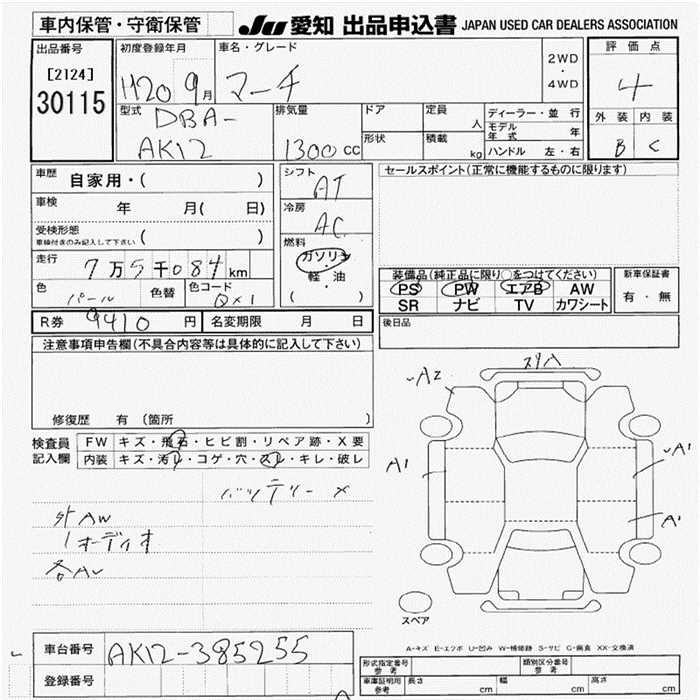 車内保管・守衛保管
JU 愛知 出品申込書 JAPAN USED CAR DEALERS ASSOCIATION
出品番号
[2124]
30115
初度登録年月
H20 9月
車名・グレード
マーチ
2WD
・
4WD
評価点
4
外装 内装
B C
型式
DBA-
AK12
排気量
1300cc
ドア
形状
定員
人
積載
kg
ディーラー・並行
モデル年式 年
ハンドル 左・右
車歴
自家用・( )
車検
年 月( 日)
受検形態
車検付きのみ記入して下さい ( )
走行
7万5千084km
色
パール
色替
色コード
QX1
シフト
AT
冷房
AC
燃料
ガソリン
・
軽・油
( )
セールスポイント(正常に機能するものに限ります)
装備品(純正品に限り○をつけてください)
PS PW エアB AW
SR ナビ TV カワシート
新車保証書
有・無
R券 9410円
名変期限 月 日
後日品
注意事項申告欄(不具合内容等は具体的に記入して下さい)
修復歴 有 (箇所 )
検査員
記入欄
FW キズ・飛石・ヒビ割・リペア跡・X要
内装 キズ・汚レ・コゲ・穴・スレ・キレ・破レ
バッテリー ×
外AW
オーディオ
スリA
A2
A1
A1
A1
スペア
A-キズ E-エクボ U-凹み W-補修跡 S-サビ C-腐食 XX-交換済
車台番号
AK12-385255
登録番号
形式指定番号
参考
類別区分番号
参考
車庫証明用
参考
長さ cm
幅 cm
高さ cm